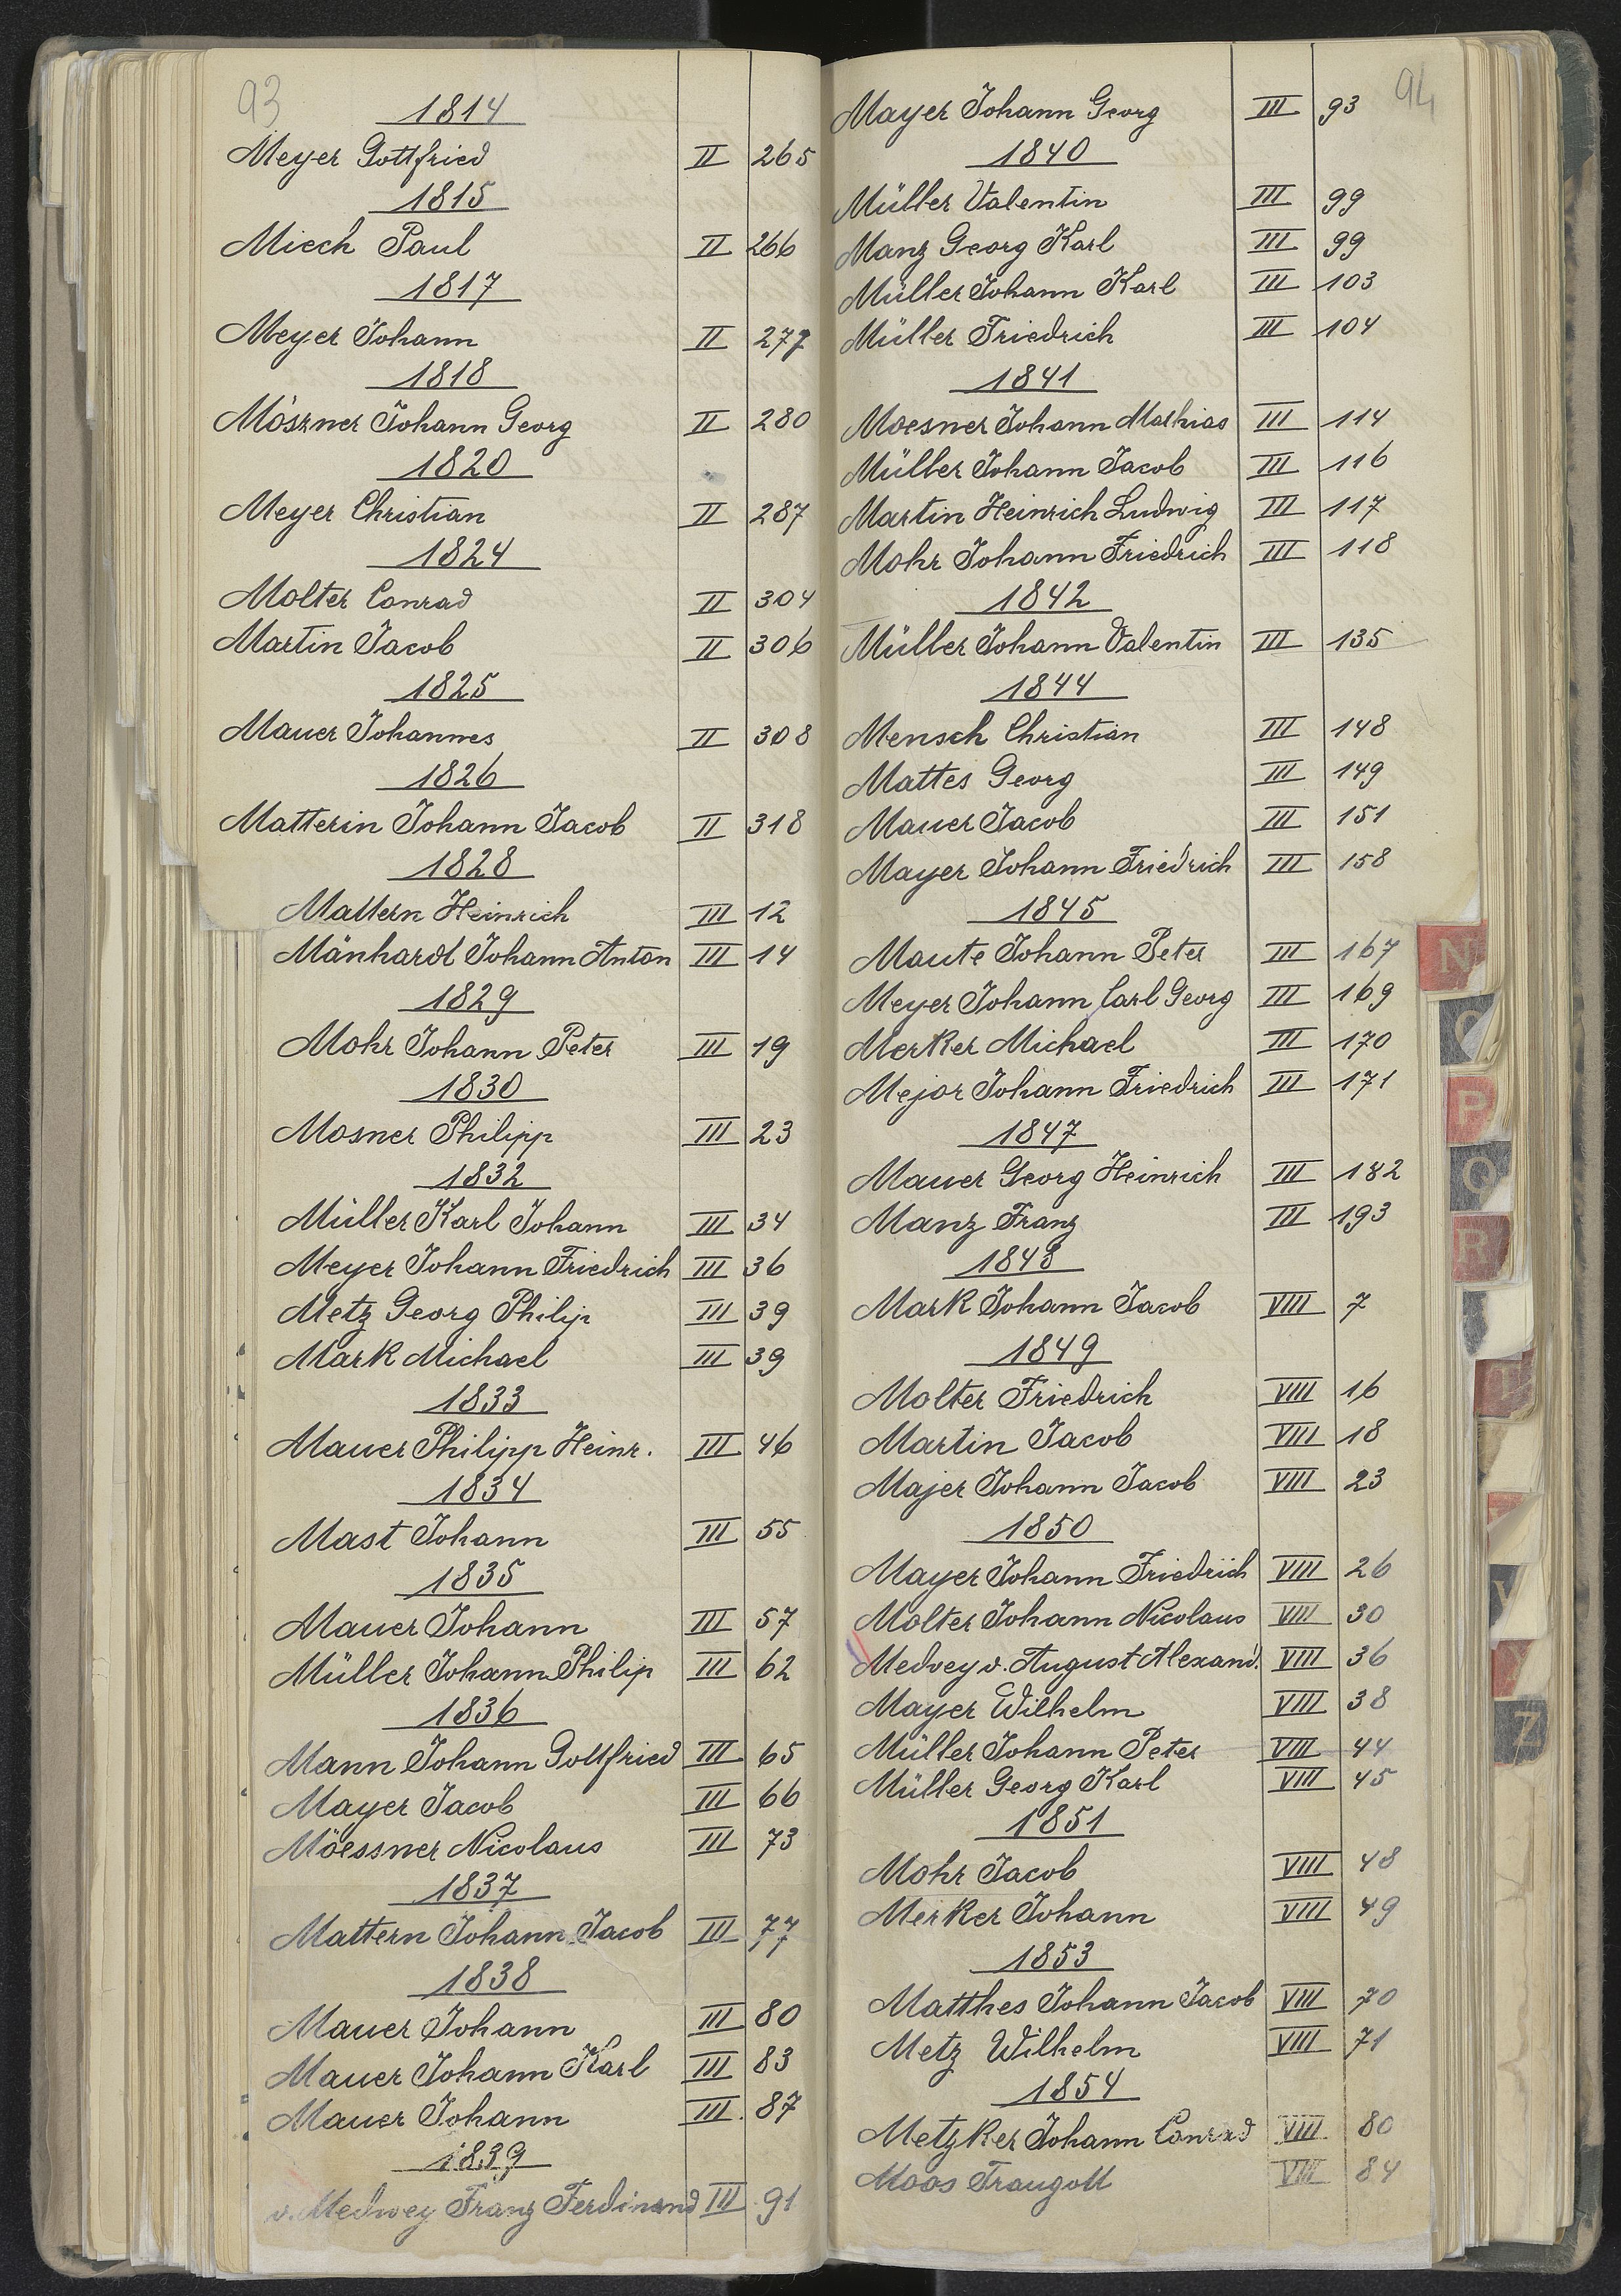 93
1814
Meyer Gottfried II 265
1815
Miech Paul II 266
1817
Meyer Johann II 277
1818
Möszner Johann Georg II 280
1820
Meyer Christian II 287
1824
Molter Conrad II 304
Martin Jacob II 306
1825
Mauer Johannes II 308
1826
Matterin Johann Jacob II 318
1828
Mattern Heinrich III 12
Mänhardt Johann Anton III 14
1829
Mohr Johann Peter III 19
1830
Mosner Philipp III 23
1832
Müller Karl Johann III 34
Meyer Johann Friedrich III 36
Metz Georg Philip III 39
Mark Michael III 39
1833
Mauer Philipp Heinr. III 46
1834
Mast Johann III 55
1835
Mauer Johann III 57
Müller Johann Philip III 62
1836
Mann Johann Gottfried III 65
Mayer Jacob III 66
Möessner Nicolaus III 73
1837
Mattern Johann Jacob III 77
1838
Mauer Johann III 80
Mauer Johann Karl III 83
Mauer Johann III 87
1839
v. Medwey Franz Ferdinand III 91
94
Mayer Johann Georg III 93
1840
Müller Valentin III 99
Manz Georg Karl III 99
Müller Johann Karl III 103
Müller Friedrich III 104
1841
Moesner Johann Mathias III 114
Müller Johann Jacob III 116
Martin Heinrich Ludwig III 117
Mohr Johann Friedrich III 118
1842
Müller Johann Valentin III 135
1844
Mensch Christian III 148
Mattes Georg III 149
Mauer Jacob III 151
Mayer Johann Friedrich III 158
1845
Maute Johann Peter III 167
Meyer Johann Carl Georg III 169
Merker Michael III 170
Mejor Johann Friedrich III 171
1847
Mauer Georg Heinrich III 182
Manz Franz III 193
1848
Mark Johann Jacob VIII 7
1849
Molter Friedrich VIII 16
Martin Jacob VIII 18
Majer Johann Jacob VIII 23
1850
Mayer Johann Friedrich VIII 26
Molter Johann Nicolaus VIII 30
Medvey v. August Alexand. VIII 36
Mayer Wilhelm VIII 38
Müller Johann Peter VIII 44
Müller Georg Karl VIII 45
1851
Mohr Jacob VIII 48
Merker Johann VIII 49
1853
Matthes Johann Jacob VIII 70
Metz Wilhelm VIII 71
1854
Metzker Johann Conrad VIII 80
Moos Traugott VIII 84
N
O
P
Q
R
V
Z